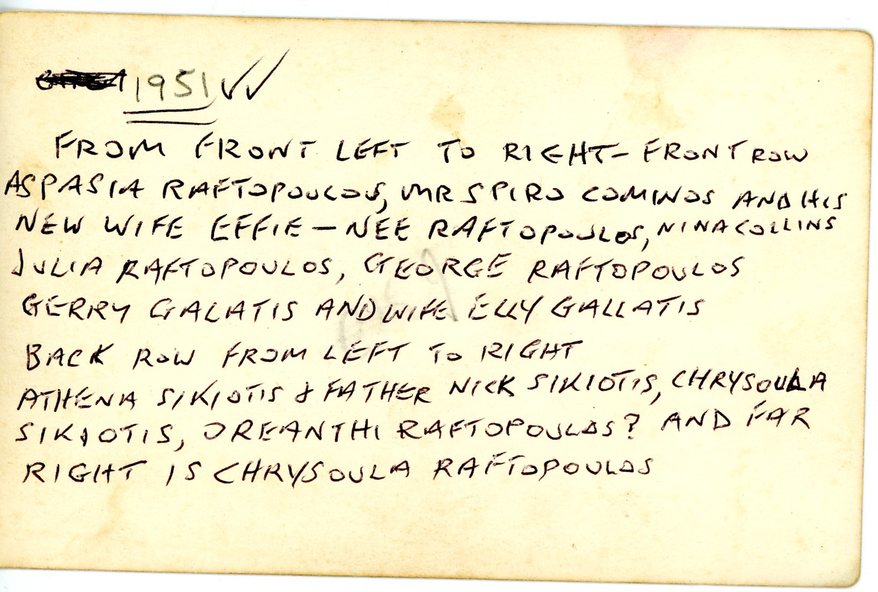 1951 ✓✓
FROM FRONT LEFT TO RIGHT - FRONT ROW
ASPASIA RAFTOPOULOS, MR SPIRO COMINOS AND HIS
NEW WIFE EFFIE - NEE RAFTOPOULOS, NINA COLLINS
JULIA RAFTOPOULOS, GEORGE RAFTOPOULOS
GERRY GALATIS AND WIFE ELLY GALLATIS
BACK ROW FROM LEFT TO RIGHT
ATHENA SIKIOTIS & FATHER NICK SIKIOTIS, CHRYSOULA
SIKIOTIS, OREANTHI RAFTOPOULOS? AND FAR
RIGHT IS CHRYSOULA RAFTOPOULOS